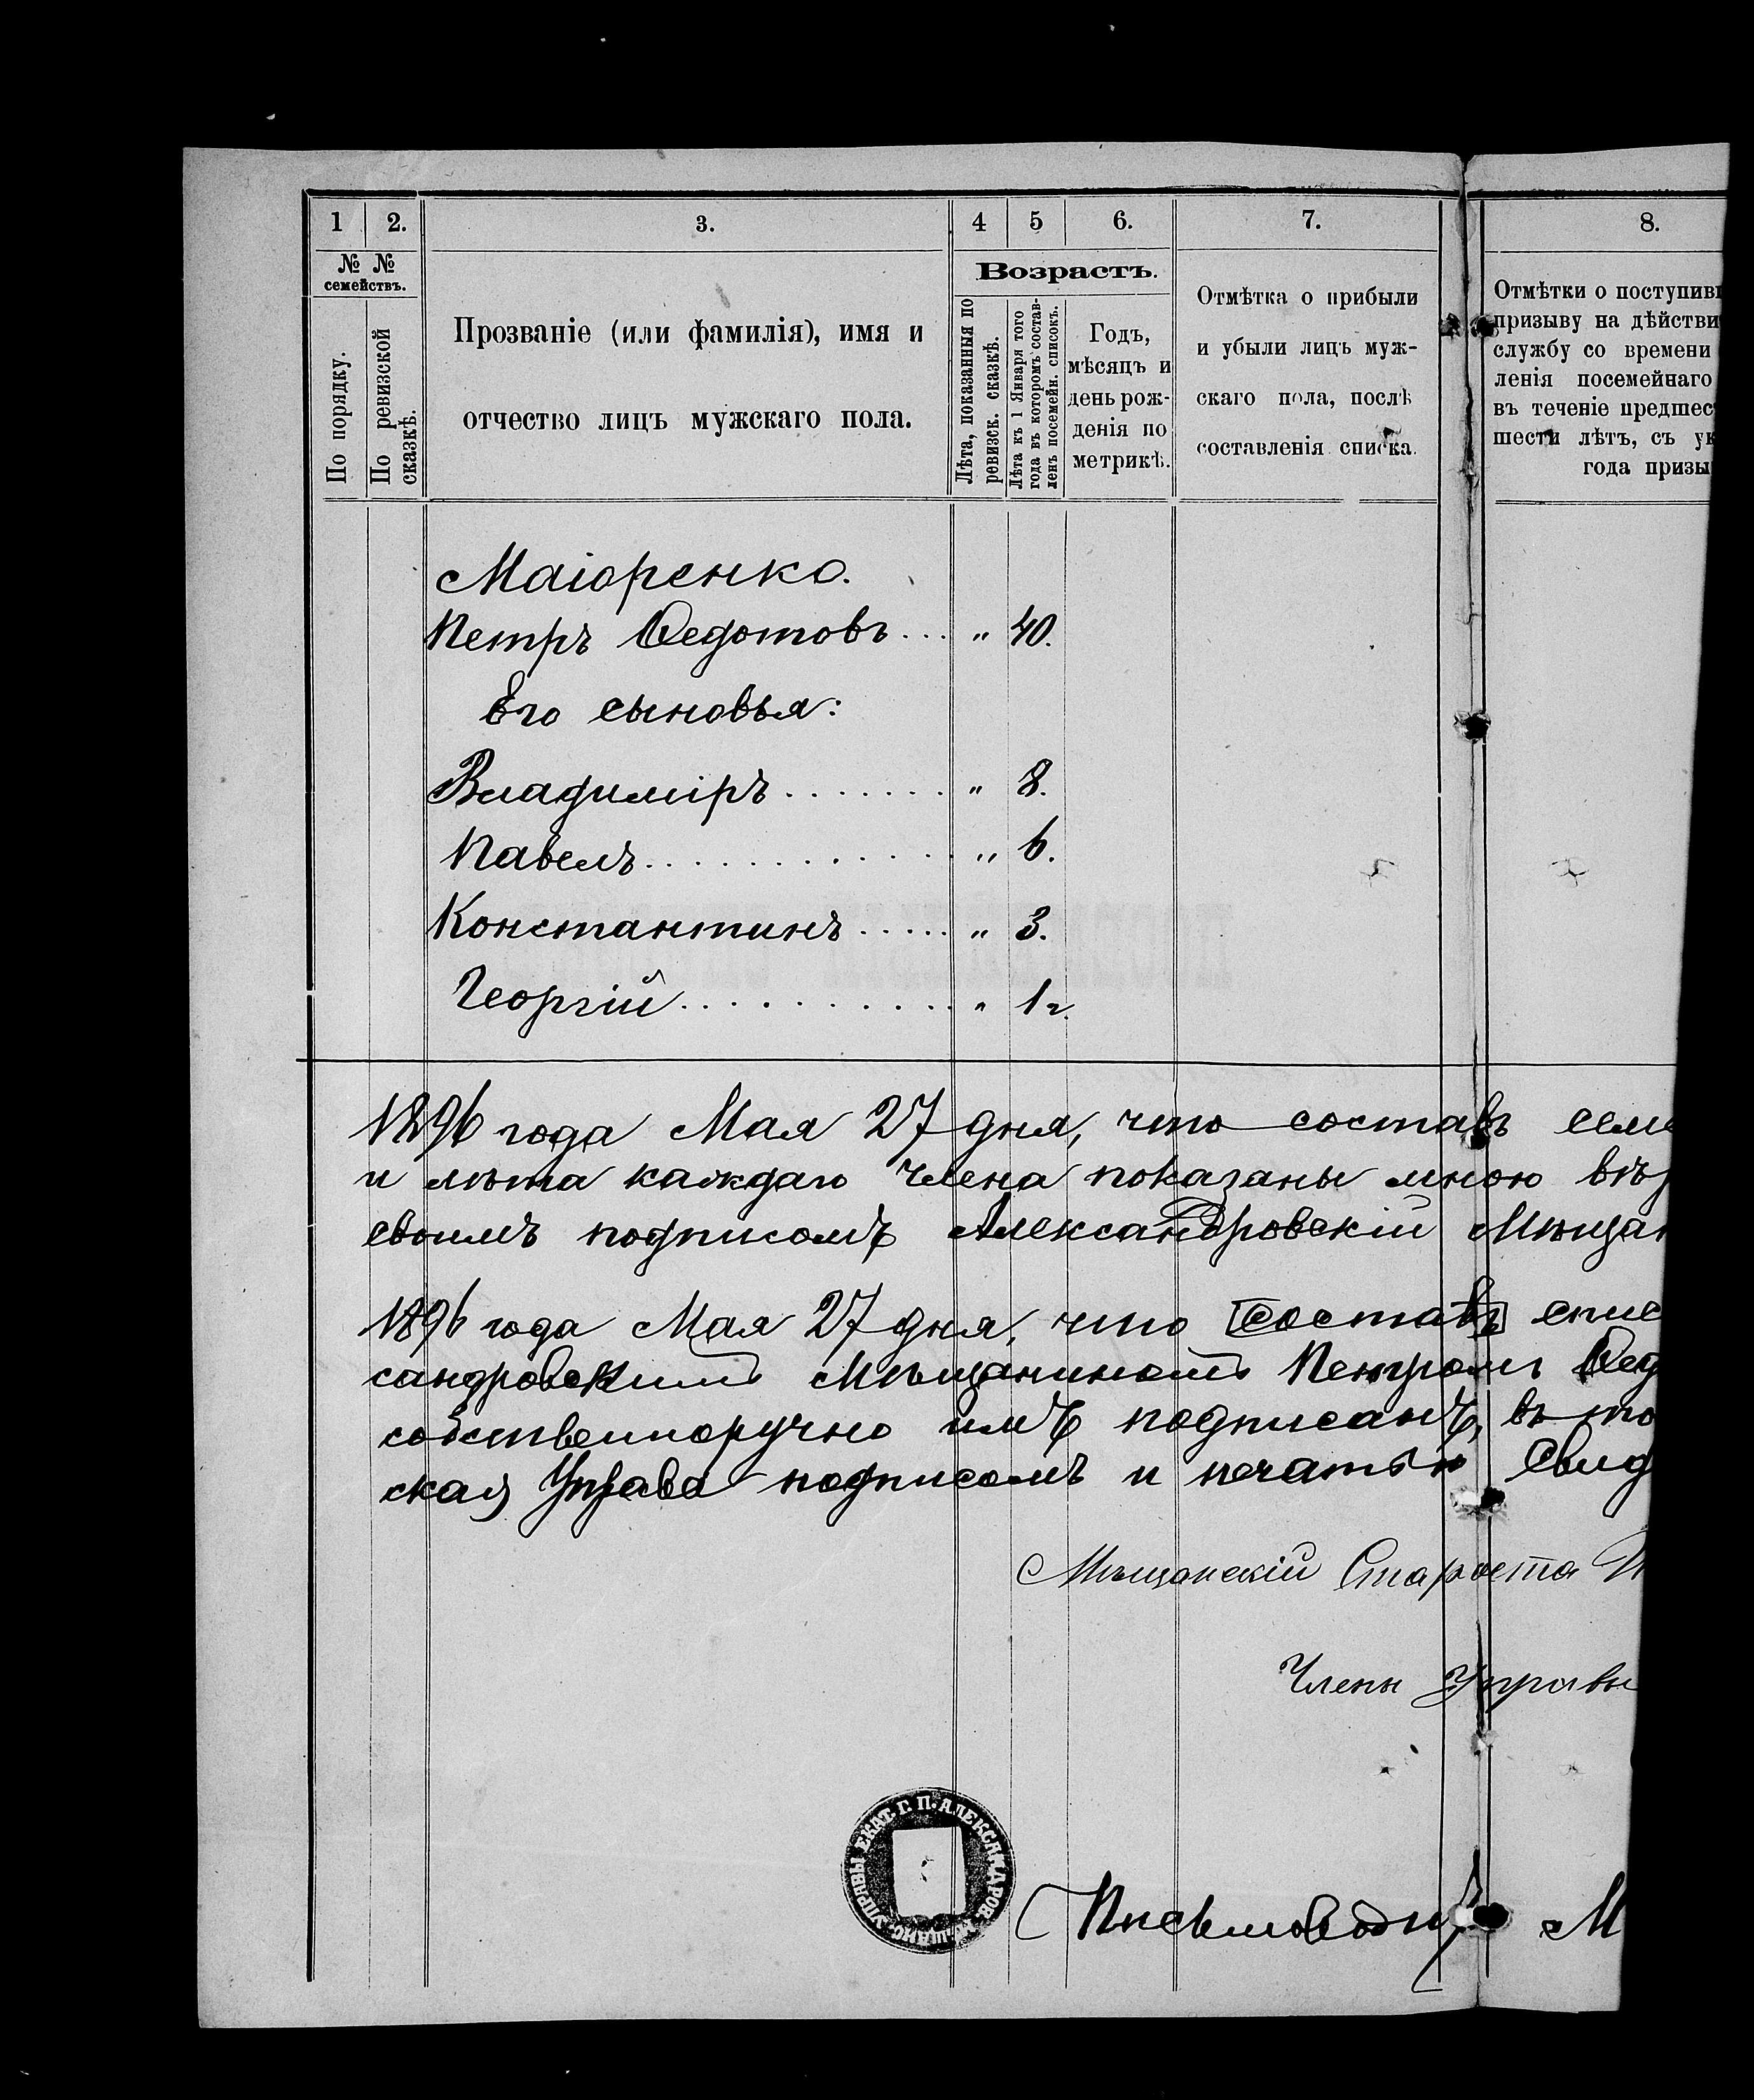 1 2. 3. 4 5 6. 7. 8.
№ №
семействъ.
По порядку.
По ревизской
сказкѣ.
Прозваніе (или фамилія), имя и
отчество лицъ мужскаго пола.
Возрастъ.
Лѣта, показанныя по
ревизск. сказкѣ.
Лѣта къ 1 Января того
года въ которомъ состав-
ленъ посемейн. списокъ.
Годъ,
мѣсяцъ и
день рож-
денія по
метрикѣ.
Отмѣтка о прибыли
и убыли лицъ муж-
скаго пола, послѣ
составленія списка.
Отмѣтки о поступивш
призыву на дѣйстви
службу со времени
ленія посемейнаго
въ теченіе предшес
шести лѣтъ, съ ук
года призы
Маіоренко.
Петръ Ѳедотовъ... „ 40.
Его сыновья:
Владиміръ....... „ 8.
Павелъ............. „ 6.
Константинъ..... „ 3.
Георгій........... „ 1 г.
1896 года Мая 27 дня, что составъ семе
и лѣта каждаго члена показаны мною вѣр
своимъ подписомъ Александровскій Мѣщан
1896 года Мая 27 дня, что [составъ] спис
сандровскимъ Мѣщаниномъ Петромъ Ѳед
собственноручно имъ подписанъ, въ то
ская Управа подписомъ и печатью Свид
Мѣщанскій Староста
Члены Управы
УПРАВЫ ЕКАТ. Г. П. АЛЕКСАНДРОВ. МѢЩАНС.
Письмоводит М